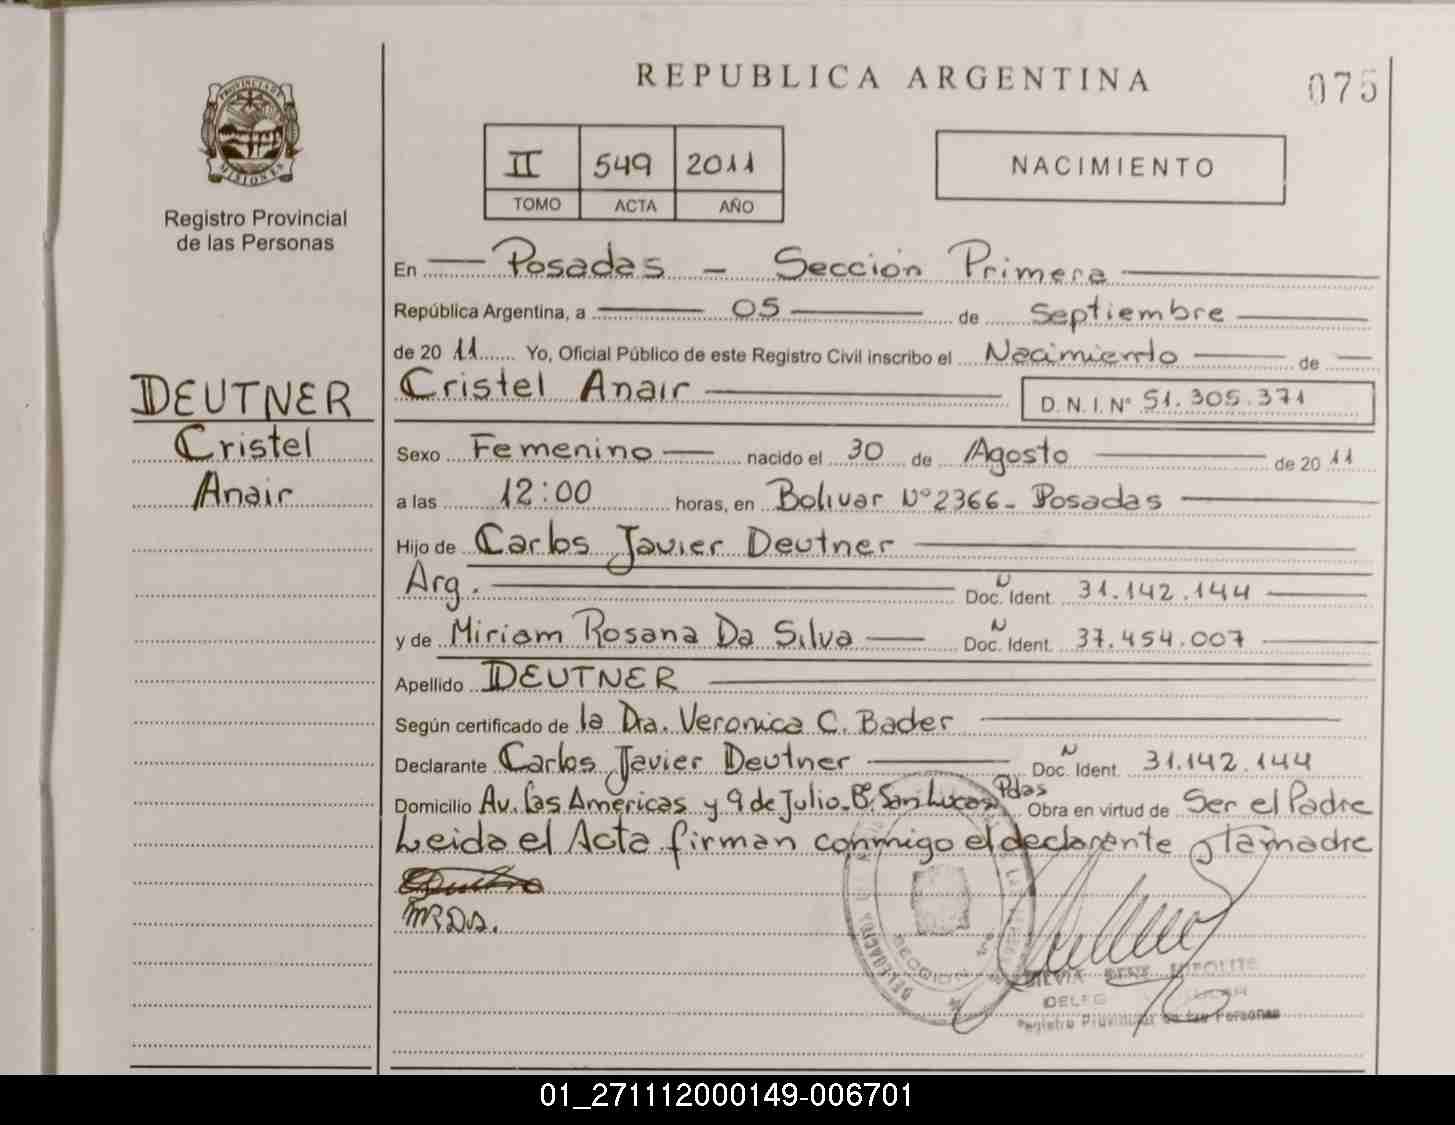 REPUBLICA ARGENTINA
075
PROVINCIA DE MISIONES
Registro Provincial
de las Personas
II 549 2011
TOMO ACTA AÑO
NACIMIENTO
En Posadas - Sección Primera
República Argentina, a 05 de Septiembre
de 2011 Yo, Oficial Público de este Registro Civil inscribo el Nacimiento de
Cristel Anair D.N.I.Nº 51.305.371
DEUTNER
Cristel
Anair
Sexo Femenino nacido el 30 de Agosto de 2011
a las 12:00 horas, en Bolivar Nº2366- Posadas
Hijo de Carlos Javier Deutner
Arg. Doc. Ident. 31.142.144
y de Miriam Rosana Da Silva Doc. Ident. 37.454.007
Apellido DEUTNER
Según certificado de la Dra. Veronica C. Bader
Declarante Carlos Javier Deutner Doc. Ident. 31.142.144
Domicilio Av. las Americas y 9 de Julio. Bº San Lucas Pdas Obra en virtud de Ser el Padre
Leida el Acta firman conmigo el declarante y la madre
MRDS.
SECCION 1ra
SILVIA
DELEG
Registro Provincial de las Personas
01_271112000149-006701